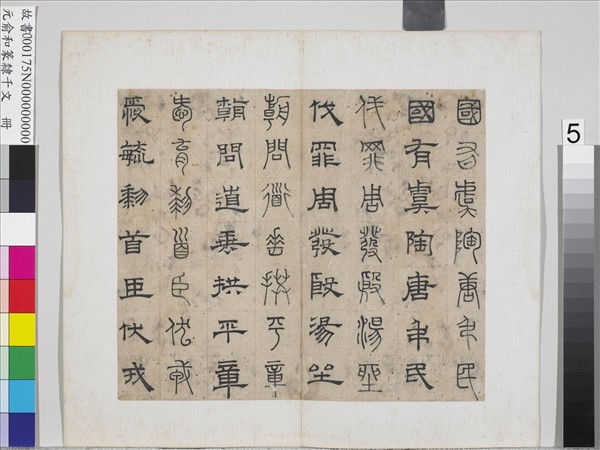 國有虞陶唐弔民
國有虞陶唐弔民
伐罪周發殷湯坐
伐罪周發殷湯坐
朝問道垂拱平章
朝問道垂拱平章
愛育黎首臣伏戎
愛育黎首臣伏戎
故書000175N000000000
元俞和篆隸千文 冊
5